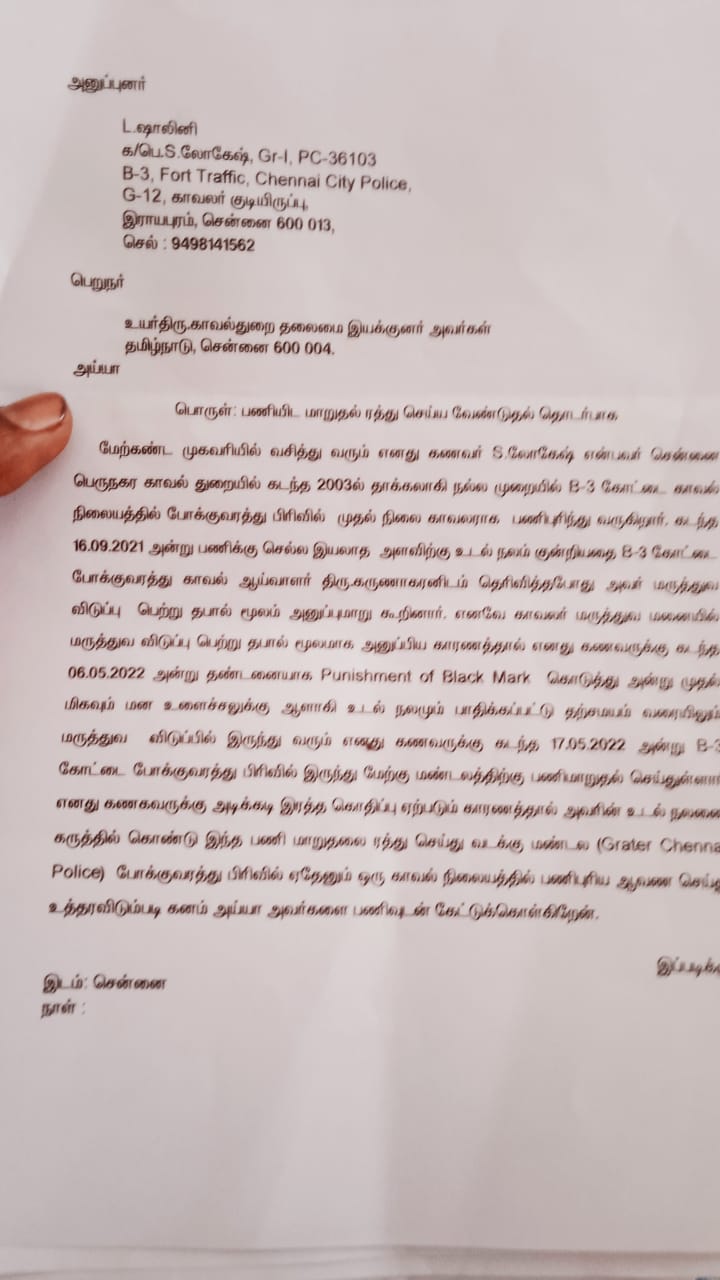 அனுப்புனர்
L.ஷாலினி
க/பெ.S.லோகேஷ், Gr-I, PC-36103
B-3, Fort Traffic, Chennai City Police,
G-12, காவலர் குடியிருப்பு,
இராயபுரம், சென்னை 600 013,
செல் : 9498141562
பெறுநர்
உயர்திரு.காவல்துறை தலைமை இயக்குனர் அவர்கள்
தமிழ்நாடு, சென்னை 600 004.
அய்யா
பொருள்: பணியிட மாறுதல் ரத்து செய்ய வேண்டுதல் தொடர்பாக
மேற்கண்ட முகவரியில் வசித்து வரும் எனது கணவர் S.லோகேஷ் என்பவர் சென்னை
பெருநகர காவல் துறையில் கடந்த 2003ல் தாக்கலாகி நல்ல முறையில் B-3 கோட்டை காவல்
நிலையத்தில் போக்குவரத்து பிரிவில் முதல் நிலை காவலராக பணிபுரிந்து வருகிறார். கடந்த
16.09.2021 அன்று பணிக்கு செல்ல இயலாத அளவிற்கு உடல் நலம் குன்றியதை B-3 கோட்டை
போக்குவரத்து காவல் ஆய்வாளர் திரு.கருணாகரனிடம் தெரிவித்தபோது அவர் மருத்துவ
விடுப்பு பெற்று தபால் மூலம் அனுப்புமாறு கூறினார். எனவே காவலர் மருத்துவ மனையில்
மருத்துவ விடுப்பு பெற்று தபால் மூலமாக அனுப்பிய காரணத்தால் எனது கணவருக்கு கடந்த
06.05.2022 அன்று தண்டனையாக Punishment of Black Mark கொடுத்து அன்று முதல்
மிகவும் மன உளைச்சலுக்கு ஆளாகி உடல் நலமும் பாதிக்கப்பட்டு தற்சமயம் வரையிலும்
மருத்துவ விடுப்பில் இருந்து வரும் எனது கணவருக்கு கடந்த 17.05.2022 அன்று B-3
கோட்டை போக்குவரத்து பிரிவில் இருந்து மேற்கு மண்டலத்திற்கு பணிமாறுதல்
எனது கணகவருக்கு அடிக்கடி இரத்த கொதிப்பு ஏற்படும் காரணத்தால் அவரின் உடல் நலனை
கருத்தில் கொண்டு இந்த பணி மாறுதலை ரத்து செய்து வடக்கு மண்டல (Grater
Police) போக்குவரத்து பிரிவில் ஏதேனும் ஒரு காவல் நிலையத்தில் பணிபுரிய ஆவண
உத்தரவிடும்படி கனம் அய்யா அவர்களை பணிவுடன் கேட்டுக்கொள்கிறேன்.
இடம்: சென்னை
நாள் :